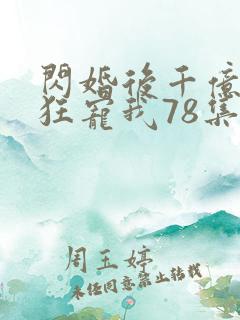 閃婚後千億
狂寵我78集
周玉婷
未经同意禁止转载